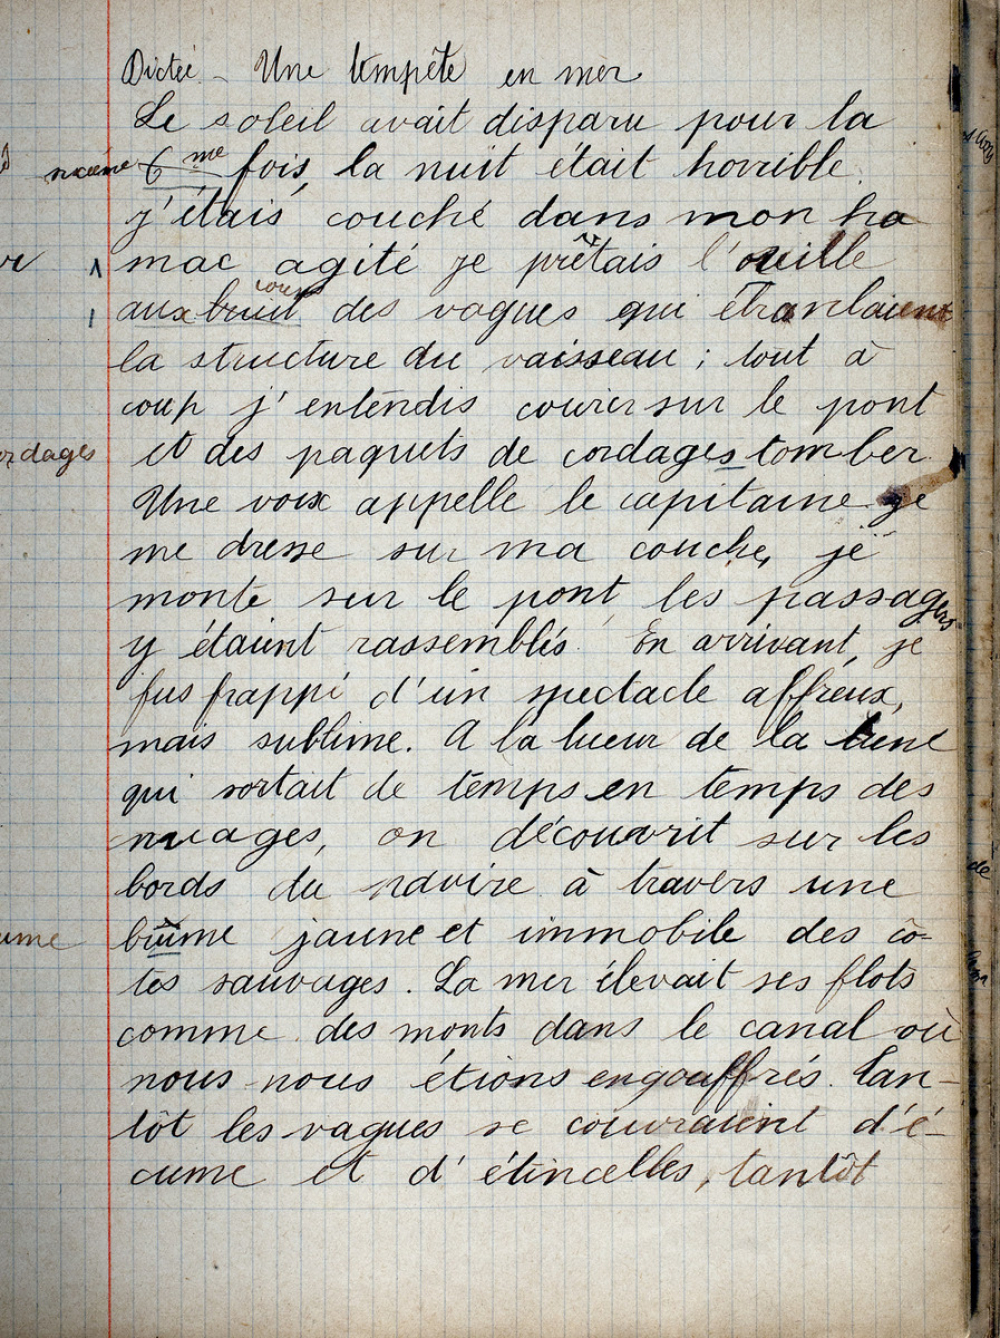 Dictée - Une tempête en mer
Le soleil avait disparu pour la
6me fois, la nuit était horrible.
j'étais couché dans mon ha
mac agité je prêtais l'oreille
aux coups des vagues qui ébranlaient
la structure du vaisseau ; tout à
coup j'entendis courir sur le pont
et des paquets de cordages tomber.
Une voix appelle le capitaine je
me dresse sur ma couche, je
monte sur le pont, les passagers
y étaient rassemblés. En arrivant, je
fus frappé d'un spectacle affreux,
mais sublime. A la lueur de la lune
qui sortait de temps en temps des
nuages, on découvrit sur les
bords du navire à travers une
brume jaune et immobile des cô-
tes sauvages. La mer élevait ses flots
comme des monts dans le canal où
nous nous étions engouffrés. Tan-
tôt les vagues se couvraient d'é-
cume et d'étincelles, tantôt